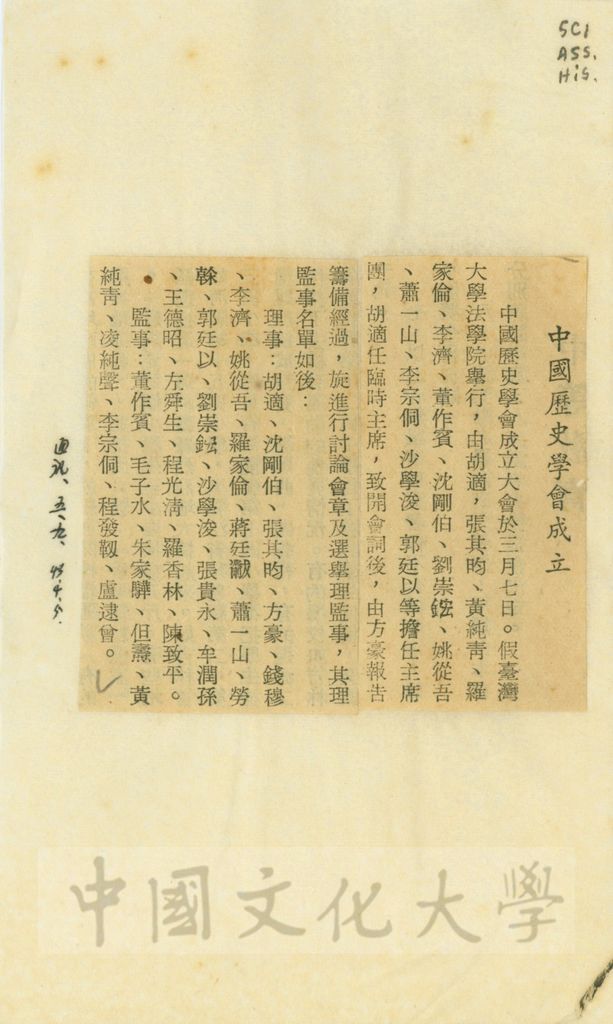 SCI
ASS.
HiS.
中國歷史學會成立
中國歷史學會成立大會於三月七日。假臺灣
大學法學院舉行，由胡適，張其昀、黃純青、羅
家倫、李濟、董作賓、沈剛伯、劉崇鋐、姚從吾
、蕭一山、李宗侗、沙學浚、郭廷以等擔任主席
團，胡適任臨時主席，致開會詞後，由方豪報告
籌備經過，旋進行討論會章及選舉理監事，其理
監事名單如後：
理事：胡適、沈剛伯、張其昀、方豪、錢穆
、李濟、姚從吾、羅家倫、蔣廷黻、蕭一山、勞
榦、郭廷以、劉崇鋐、沙學浚、張貴永、牟潤孫
、王德昭、左舜生、程光清、羅香林、陳致平。
監事：董作賓、毛子水、朱家驊、但燾、黃
純青、凌純聲、李宗侗、程發軔、盧逮曾。
五、九、43.4.5.
中國文化大學